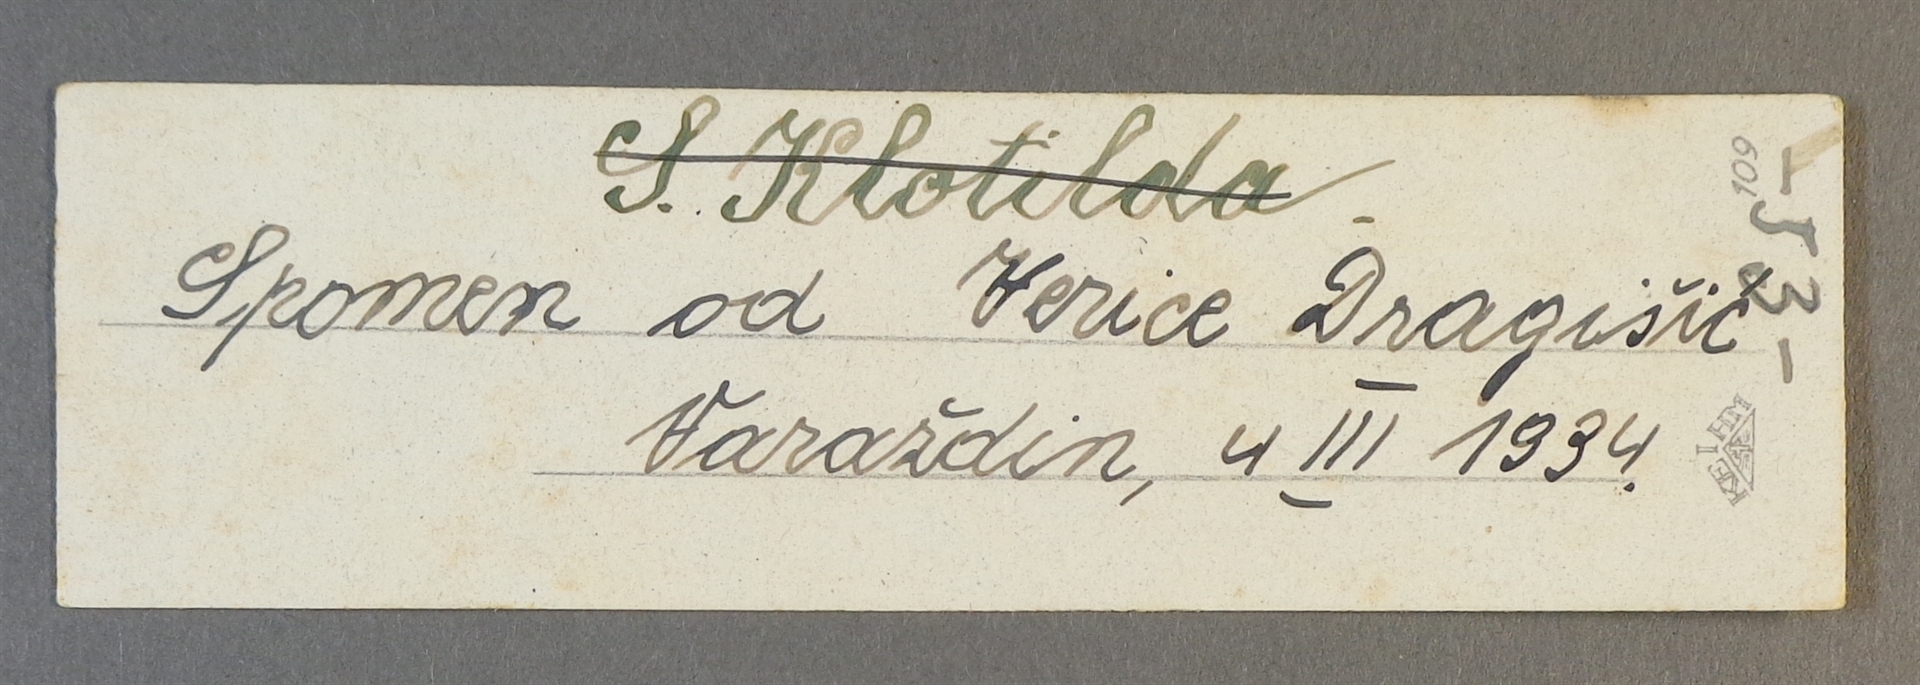 S. Klotilda
Spomen od Verice Dragišić
Varaždin, 4 III 1934.
109